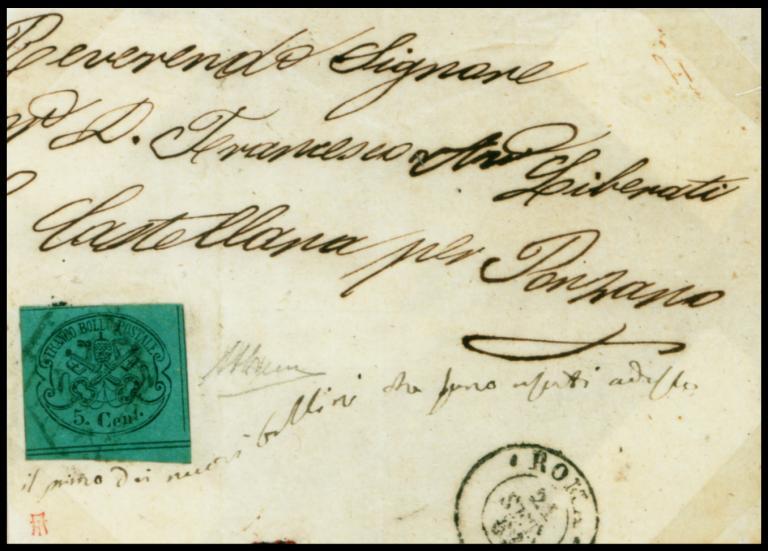 Reverendo Signore
D. Francesco Liberati
Castellana per Ponzano
FRANCO BOLLO POSTALE
5. Cent.
il primo dei nuovi bollini che sono usciti adesso
ROMA
21